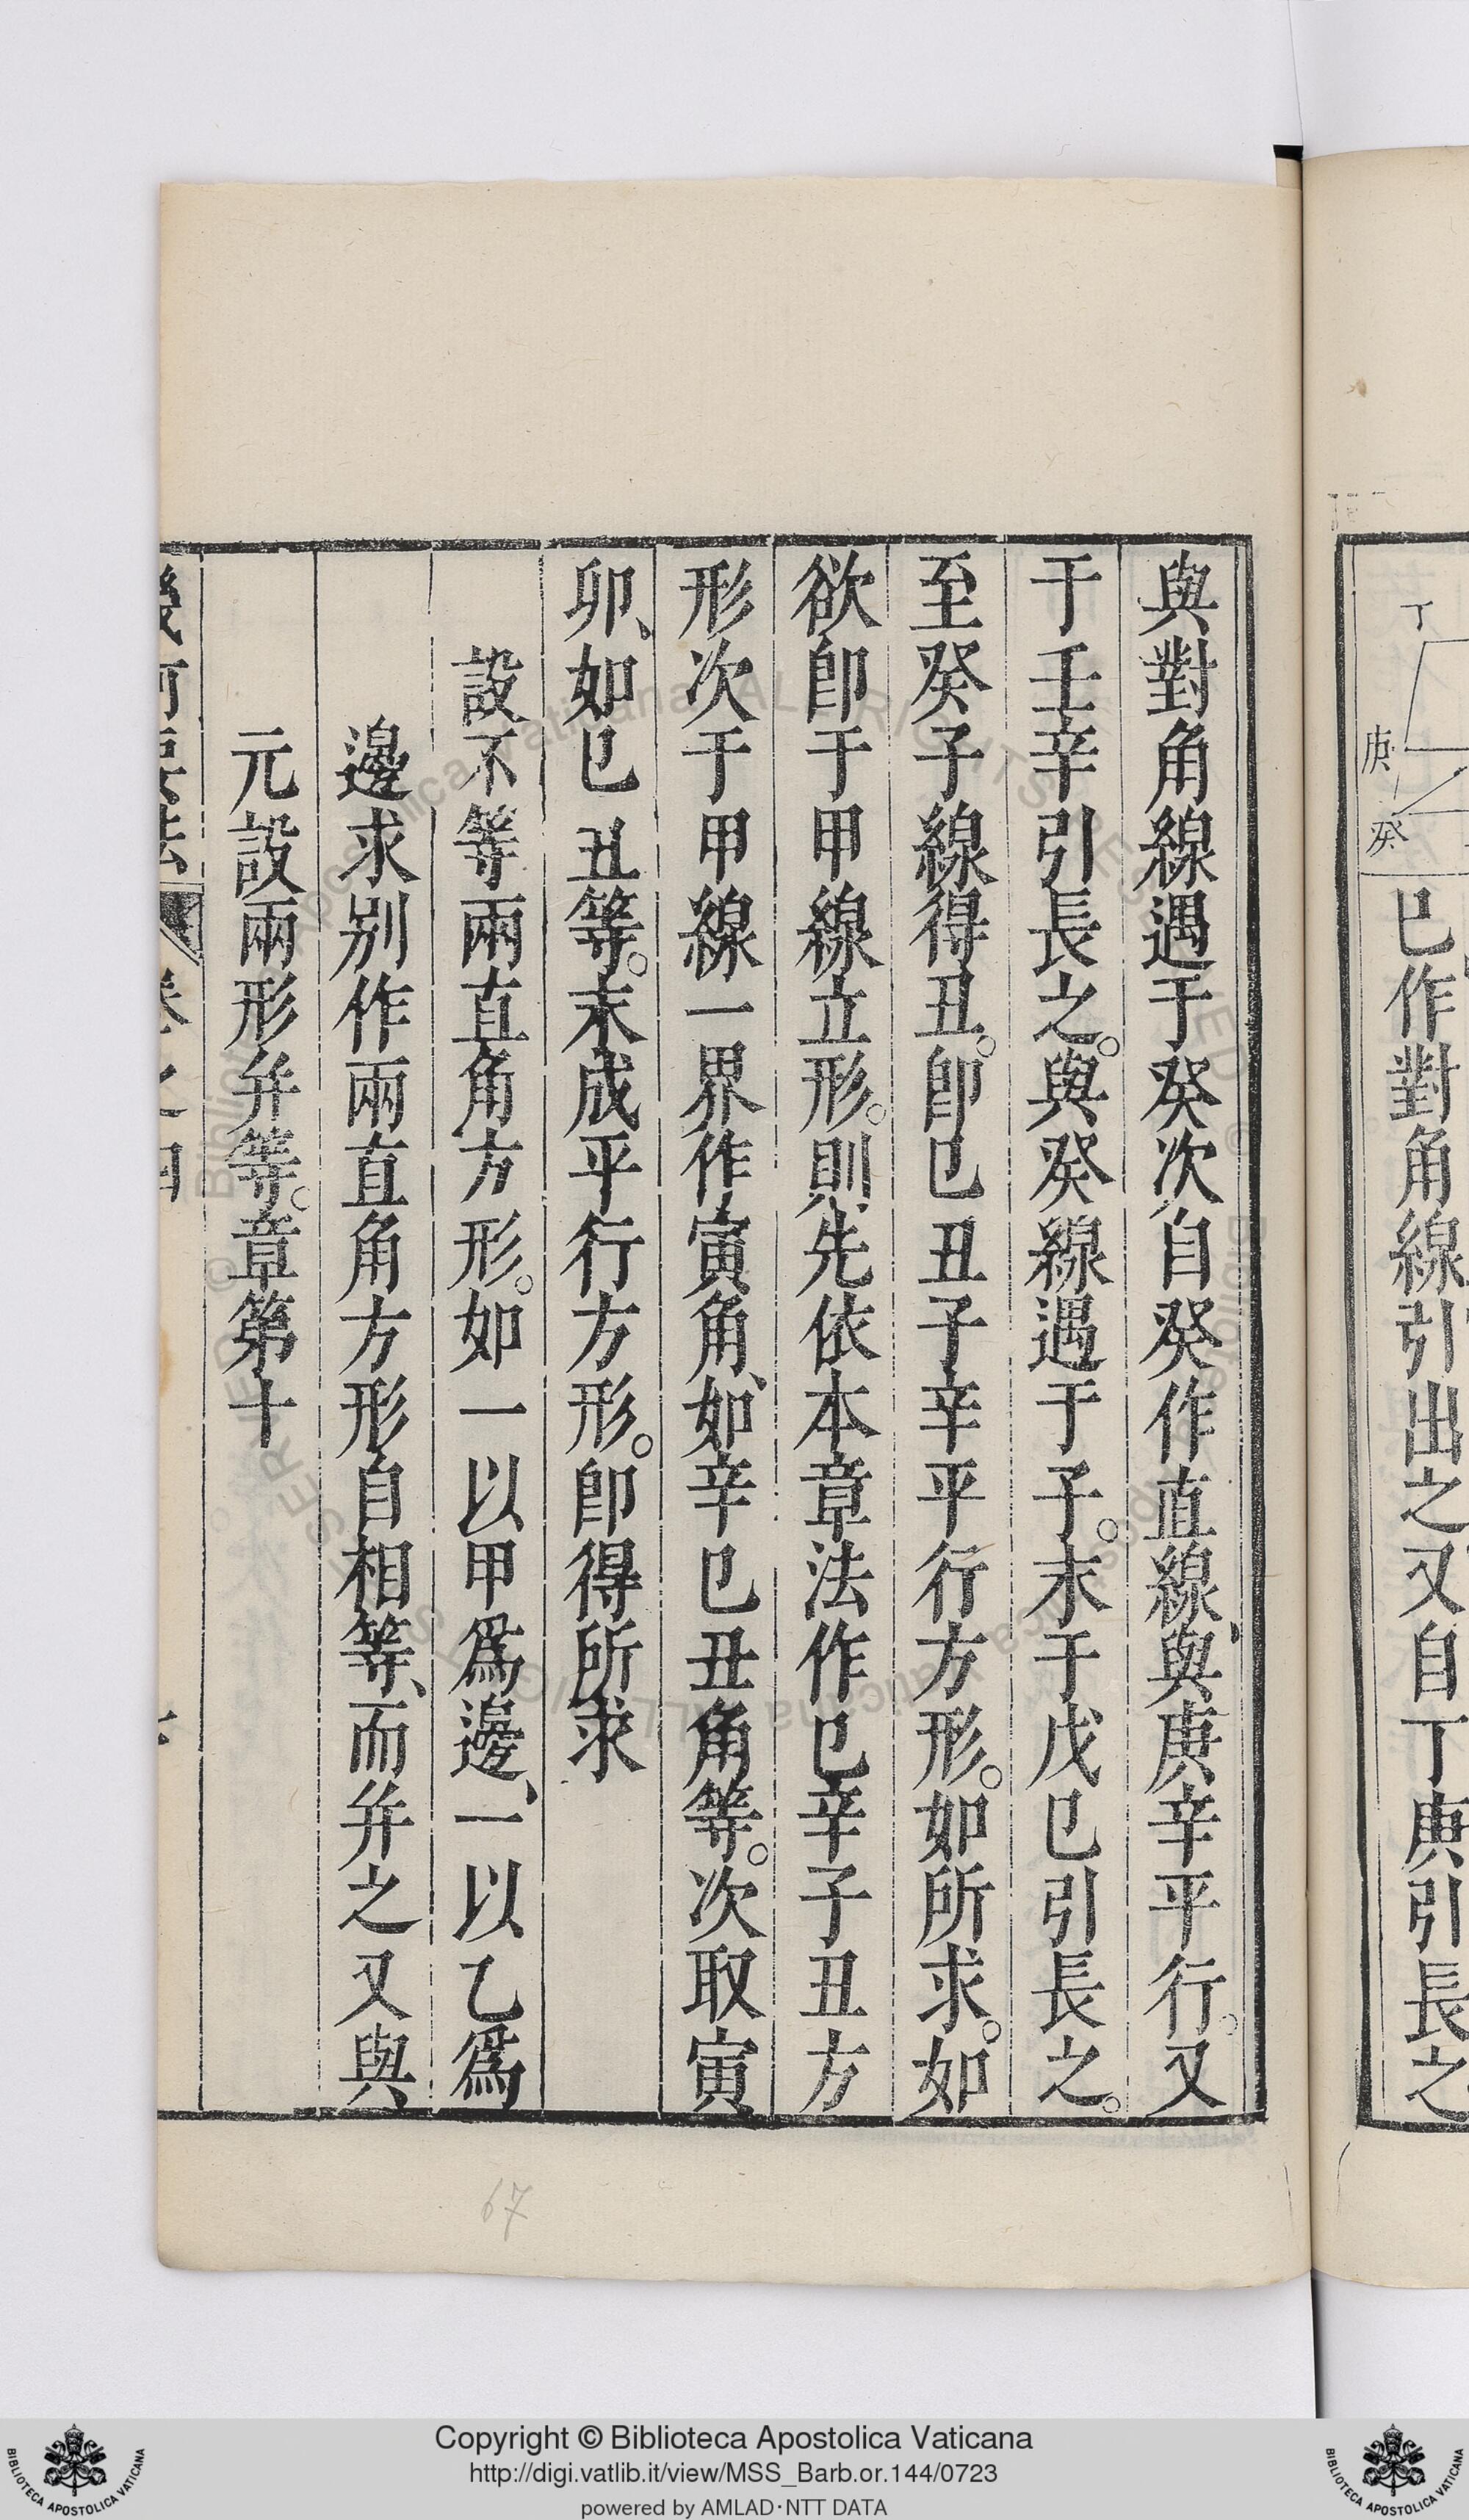 丁
庚
癸
巳作對角線引出之又自丁庚引長之
與對角線遇于癸次自癸作直線、與庚辛平行。又
于壬辛引長之。與癸線遇于子。末于戊巳引長之。
至癸子線得丑。卽巳丑子辛平行方形。如所求。如
欲卽于甲線立形。則先依本章法作巳辛子丑方
形次于甲線一界作寅角、如辛巳丑角等。次取寅
卯、如巳丑等。末成平行方形。卽得所求
設不等兩直角方形。如一以甲爲邊、一以乙爲
邊求别作兩直角方形自相等、而幷之又與
元設兩形幷等。章第十
67
Copyright © Biblioteca Apostolica Vaticana
http://digi.vatlib.it/view/MSS_Barb.or.144/0723
powered by AMLAD·NTT DATA
BIBLIOTECA APOSTOLICA VATICANA
BIBLIOTECA APOSTOLICA VATICANA